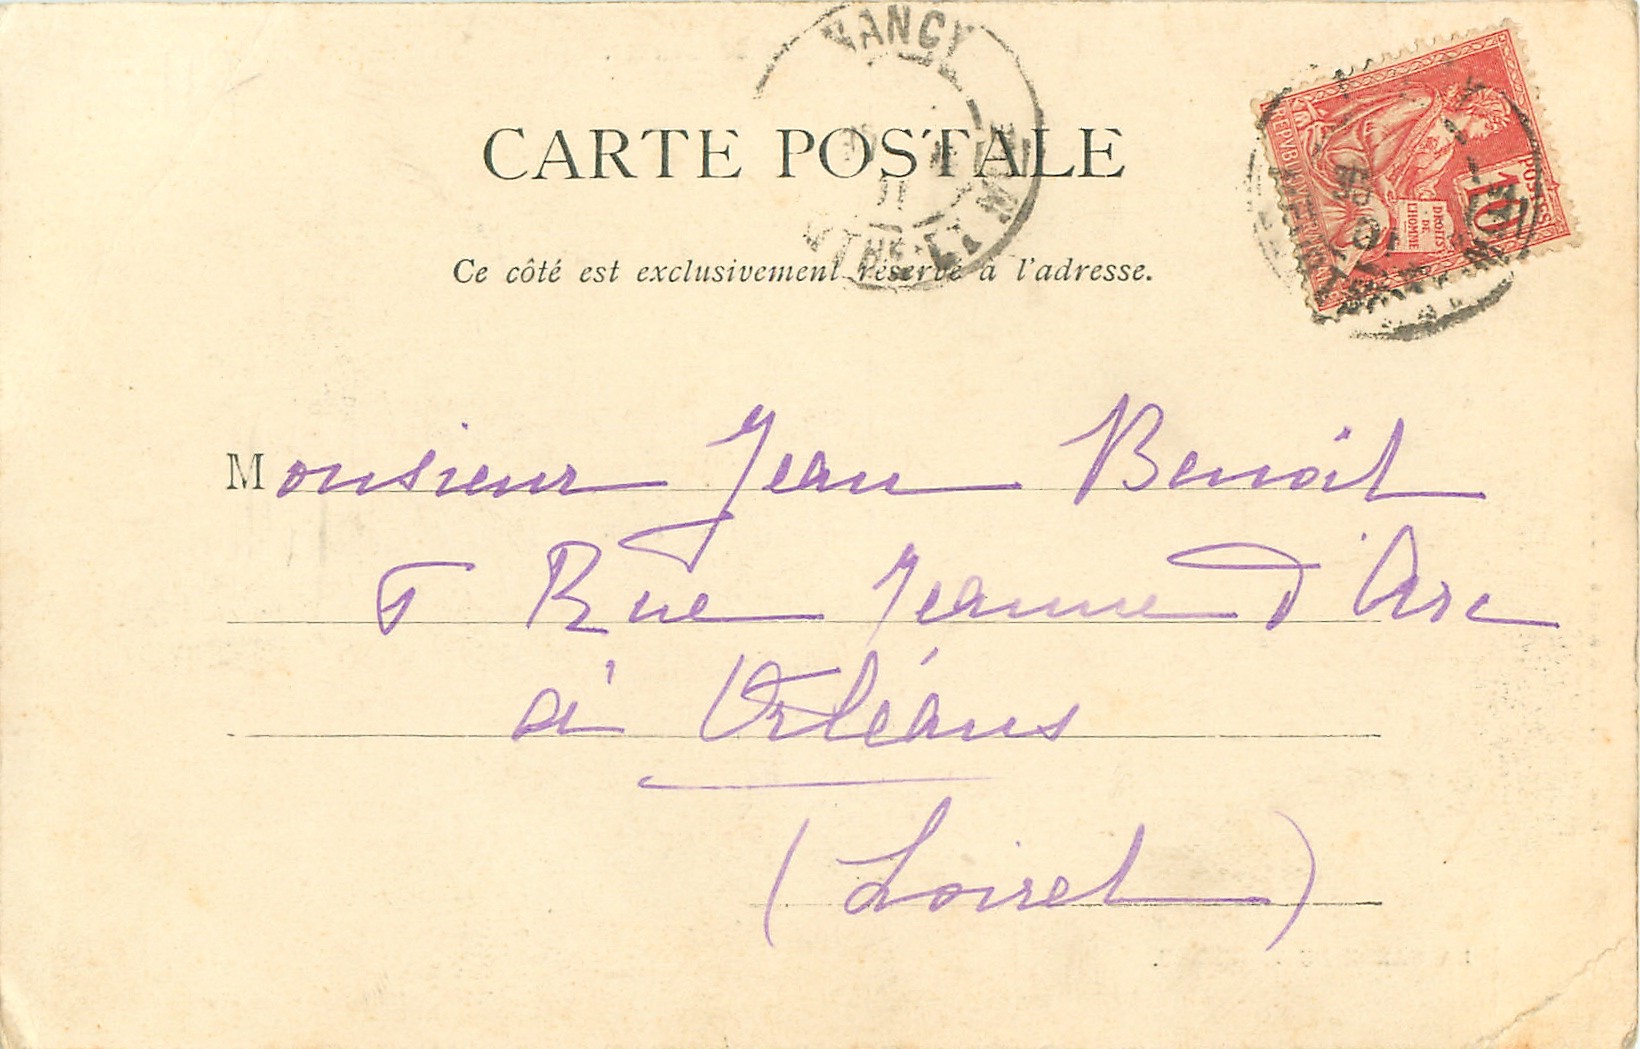 NANCY
MTHE-ET-MOSELLE
CARTE POSTALE
Ce côté est exclusivement réservé à l'adresse.
REPUBLIQUE FRANÇAISE
POSTES
10
DROITS
DE
L'HOMME
Monsieur Jean Benoît
5 Rue Jeanne d'Arc
à Orléans
(Loiret)